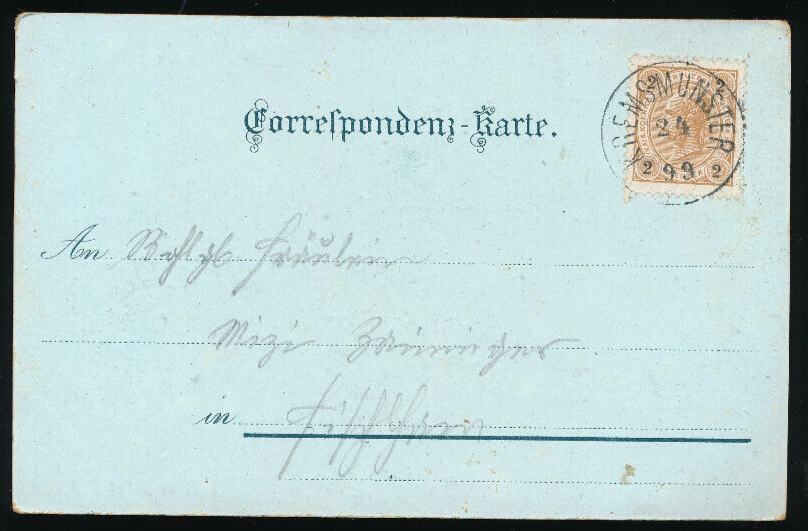 Correspondenz-Karte.
KREMSMÜNSTER
2 4
99
2 2
2 2
An Wohlgb Fräulein
Mizi
in